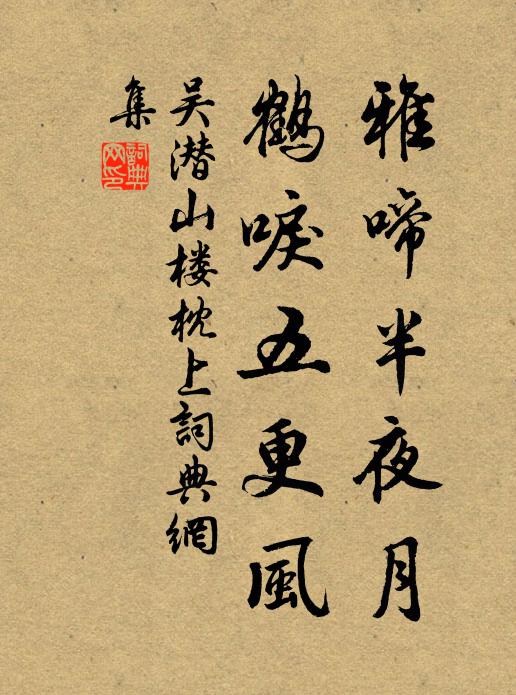 雅啼半夜月
鶴唳五更風
吴潜山楼枕上詞典網
集
詞典網印